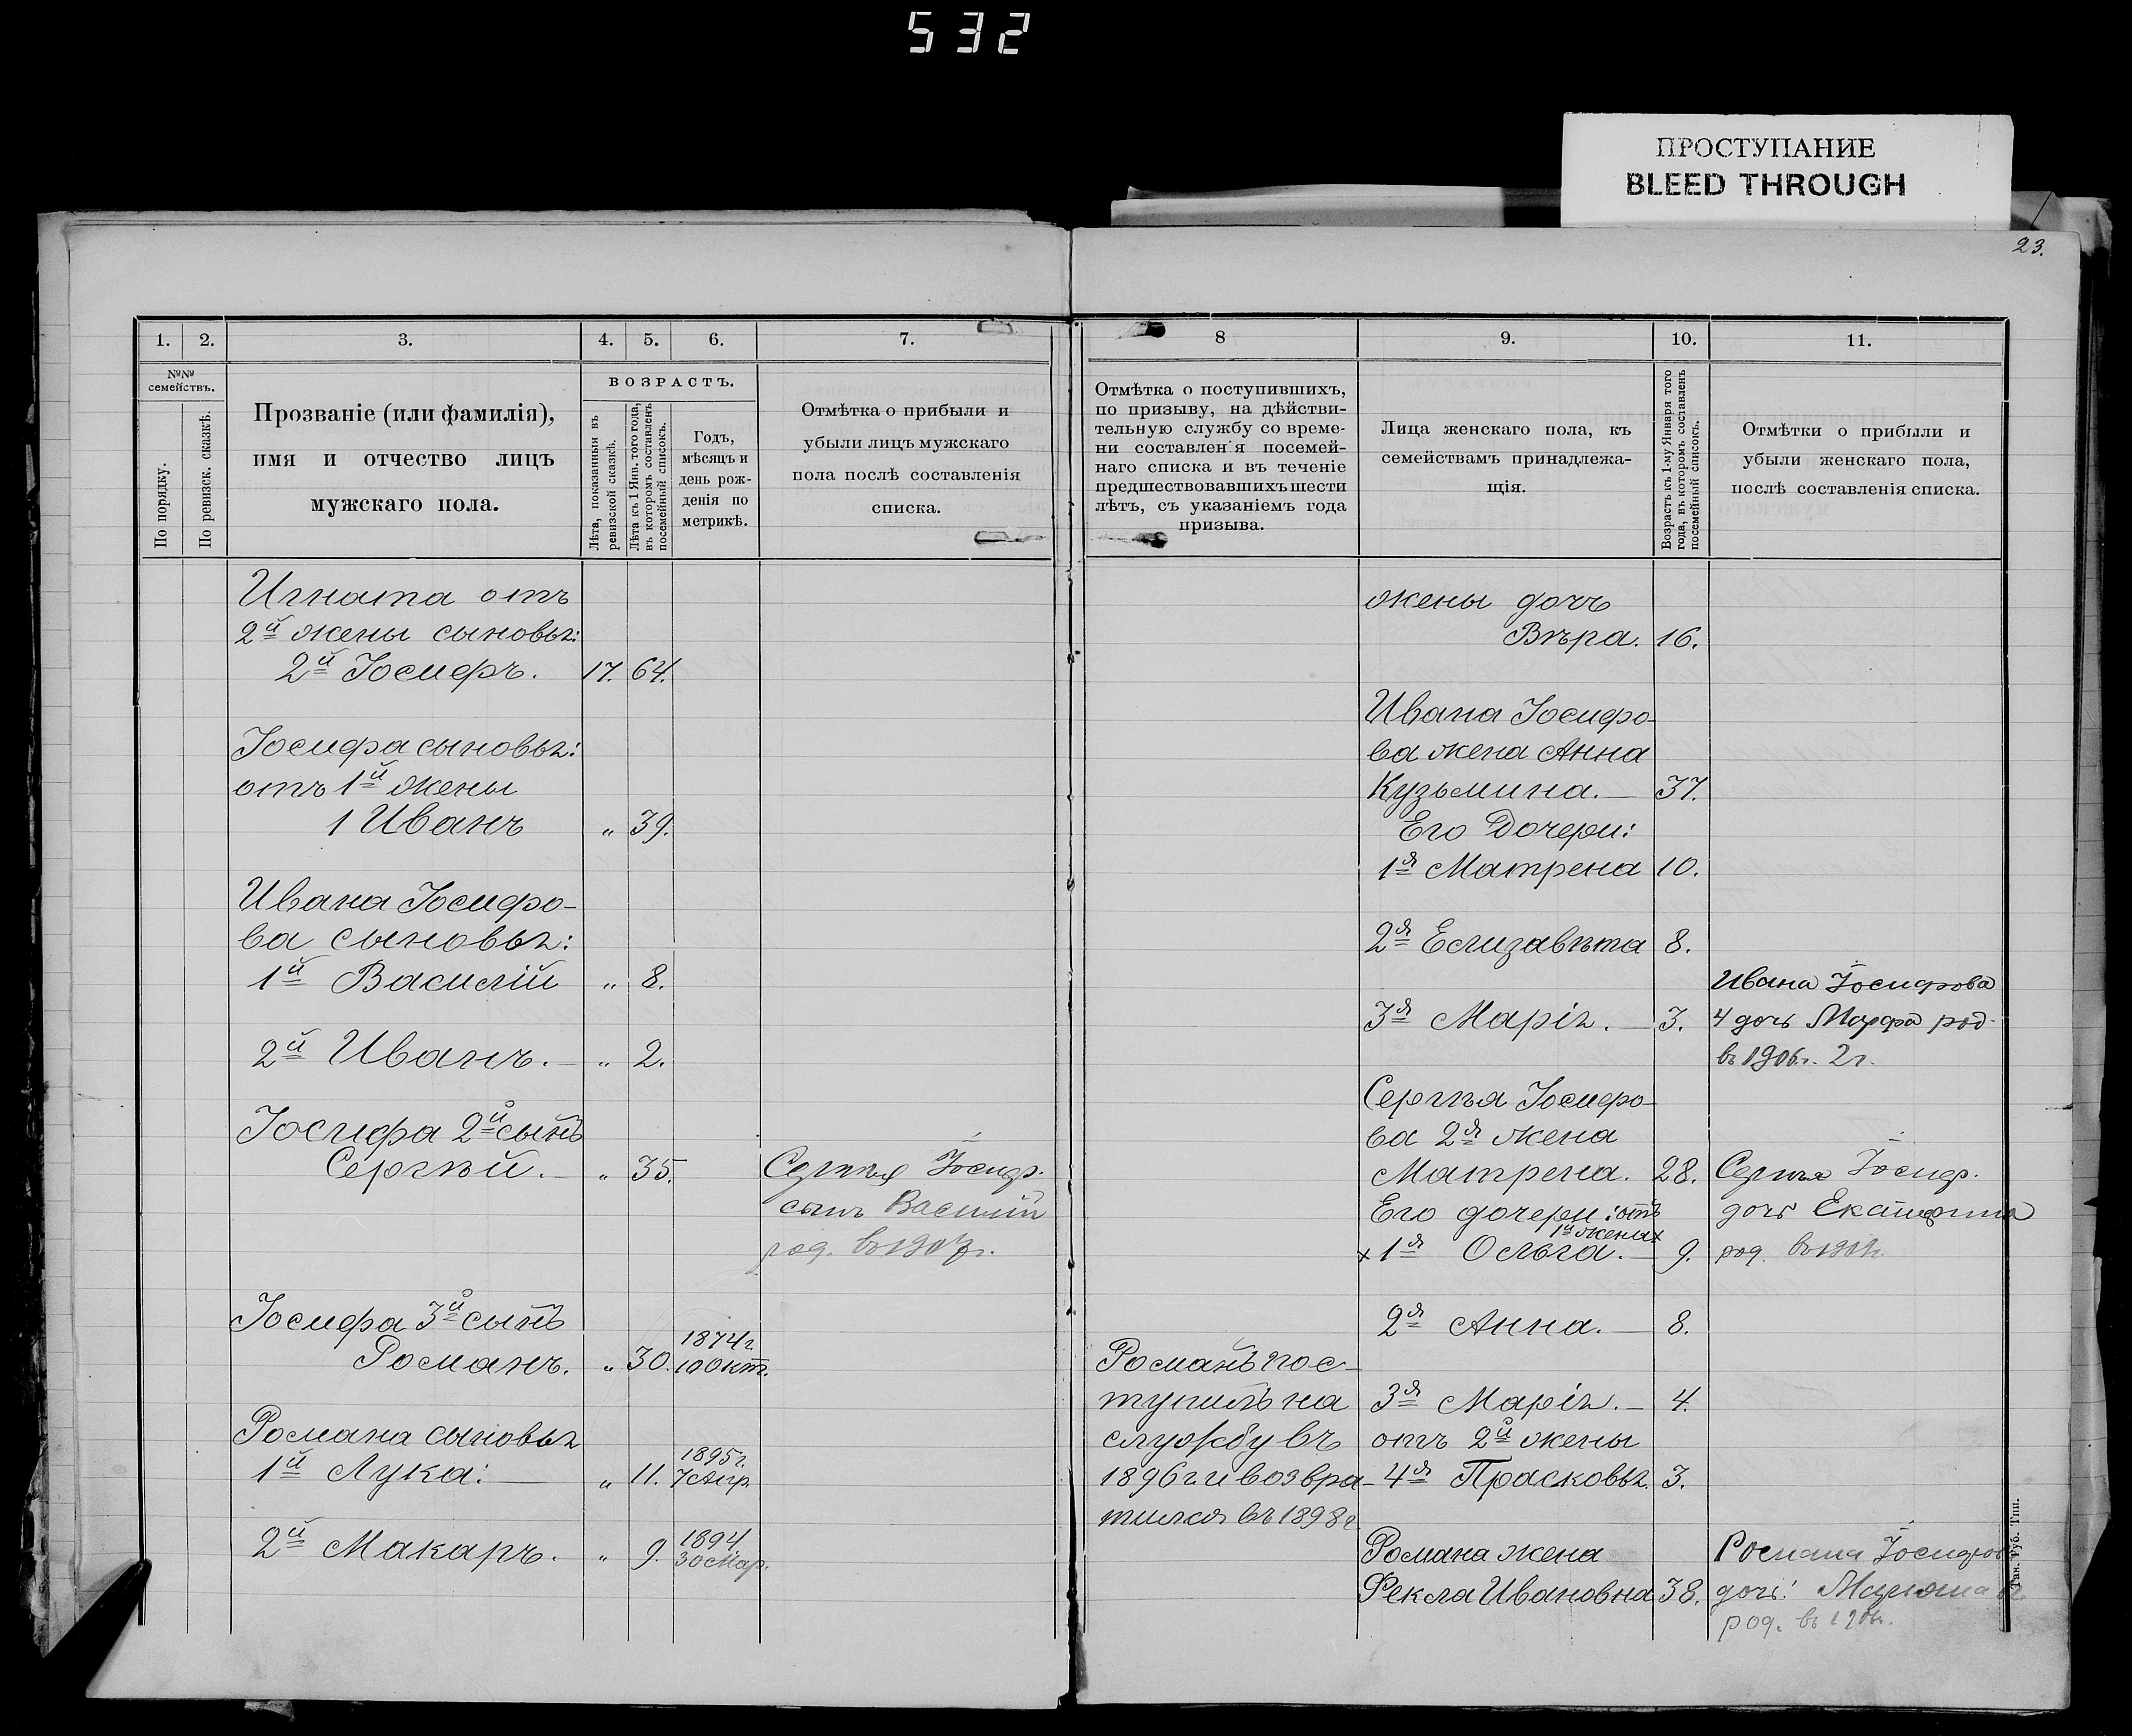 532
ПРОСТУПАНИЕ
BLEED THROUGH
23.
1.
2.
3.
4.
5.
6.
7.
№№
семействъ.
По порядку.
По ревизск. сказкѣ.
Прозваніе (или фамилія),
имя и отчество лицъ
мужскаго пола.
ВОЗРАСТЪ.
Лѣта, показанныя въ
ревизской сказкѣ.
Лѣта къ 1 Янв. того года,
въ которомъ составленъ
посемейный списокъ.
Годъ,
мѣсяцъ и
день рож-
денія по
метрикѣ.
Отмѣтка о прибыли и
убыли лицъ мужскаго
пола послѣ составленія
списка.
Игната отъ
2й жены сыновья:
2й Іосифъ. 17. 64.
Іосифа сыновья:
отъ 1й жены
1 Иванъ „ 39.
Ивана Іосифо-
ва сыновья:
1й Василій „ 8.
2й Иванъ. „ 2.
Іосифа 2й сынъ
Сергѣй. „ 35.
Сергѣя Іосиф.
сынъ Василій
род. въ 1907г.
Іосифа 3й сынъ
Романъ. „ 30. 1874г.
10 Окт.
Романа сыновья
1й Лука: „ 11. 1895г.
7 Апр.
2й Макаръ. „ 9. 1894
30 Мар.
8
9.
10.
11.
Отмѣтка о поступившихъ,
по призыву, на дѣйстви-
тельную службу со време-
ни составлен'я посемей-
наго списка и въ теченіе
предшествовавшихъ шести
лѣтъ, съ указаніемъ года
призыва.
Лица женскаго пола, къ
семействамъ принадлежа-
щія.
Возрастъ къ 1-му Января того
года, въ которомъ составленъ
посемейный списокъ.
Отмѣтки о прибыли и
убыли женскаго пола,
послѣ составленія списка.
жены дочь
Вѣра. 16.
Ивана Іосифо-
ва жена Анна
Кузьмина. 37.
Его Дочери:
1я Матрена 10.
2я Елизавѣта 8.
3я Марія. 3.
Ивана Іосифова
4 дочь Марфа род.
въ 1906г. 2г.
Сергѣя Іосифо-
ва 2я жена
Матрена. 28.
Его дочери: отъ
1й жены х
х 1я Ольга. 9.
Сергѣя Іосиф.
дочь Екатерина
род.
2я Анна. 8.
Романъ пос-
тупилъ на
службу въ
1896г. и возвра-
тился въ 1898г.
3я Марія. 4.
отъ 2й жены
4я Прасковья. 3.
Романа жена
Фекла Ивановна 38.
Романа Іосифов
дочь:
род. въ
Тип.